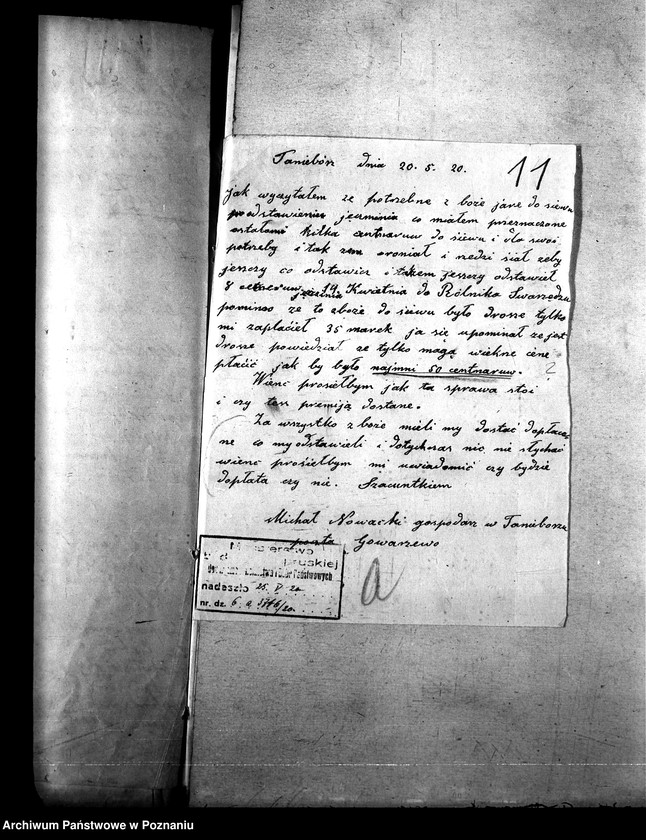 Taniebórz dnia 20.5.20.
11
Jak wyczytałem ze potrzebne z boże jare do siewu
podstawienia jeczminia co miałem przeznaczone
ostałomi kilka centnaruw do siewu i dlo swoi
potrzeby i tak zem oroniał i rzedzi siał zeby
jeszczy co odstawicz i takzem jeszczy odstawieł
8 jeczminia 19 Kwietnia do Rólnika Swarzędzu
pominao ze to zboże do siewu było drosze tylko
mi zapłacieł 35 marek ja sie upominał ze jest
drosze powiedział ze tylko mogą wiekne cene
płácić jak by było najmni 50 centnaruw.
Wienc prosiełbym jak ta sprawa stoi
i czy ten premiją dostane.
Za wszystko z boże mieli my dostać dopłaco
ne co my odstawieli i dotychczas nic nie słychać
wienc prosiełbym mi uwiadomić czy bydzie
dopłata czy nie. Szacuntkiem
Michał Nowacki gospodarz w Tanieborzu
poszta Gowarzewo
Ministerstwo
b. dz. pruskiej
Państwowych
nadeszło 25. V. 20
nr. dz. 6. a
a
Archiwum Państwowe w Poznaniu